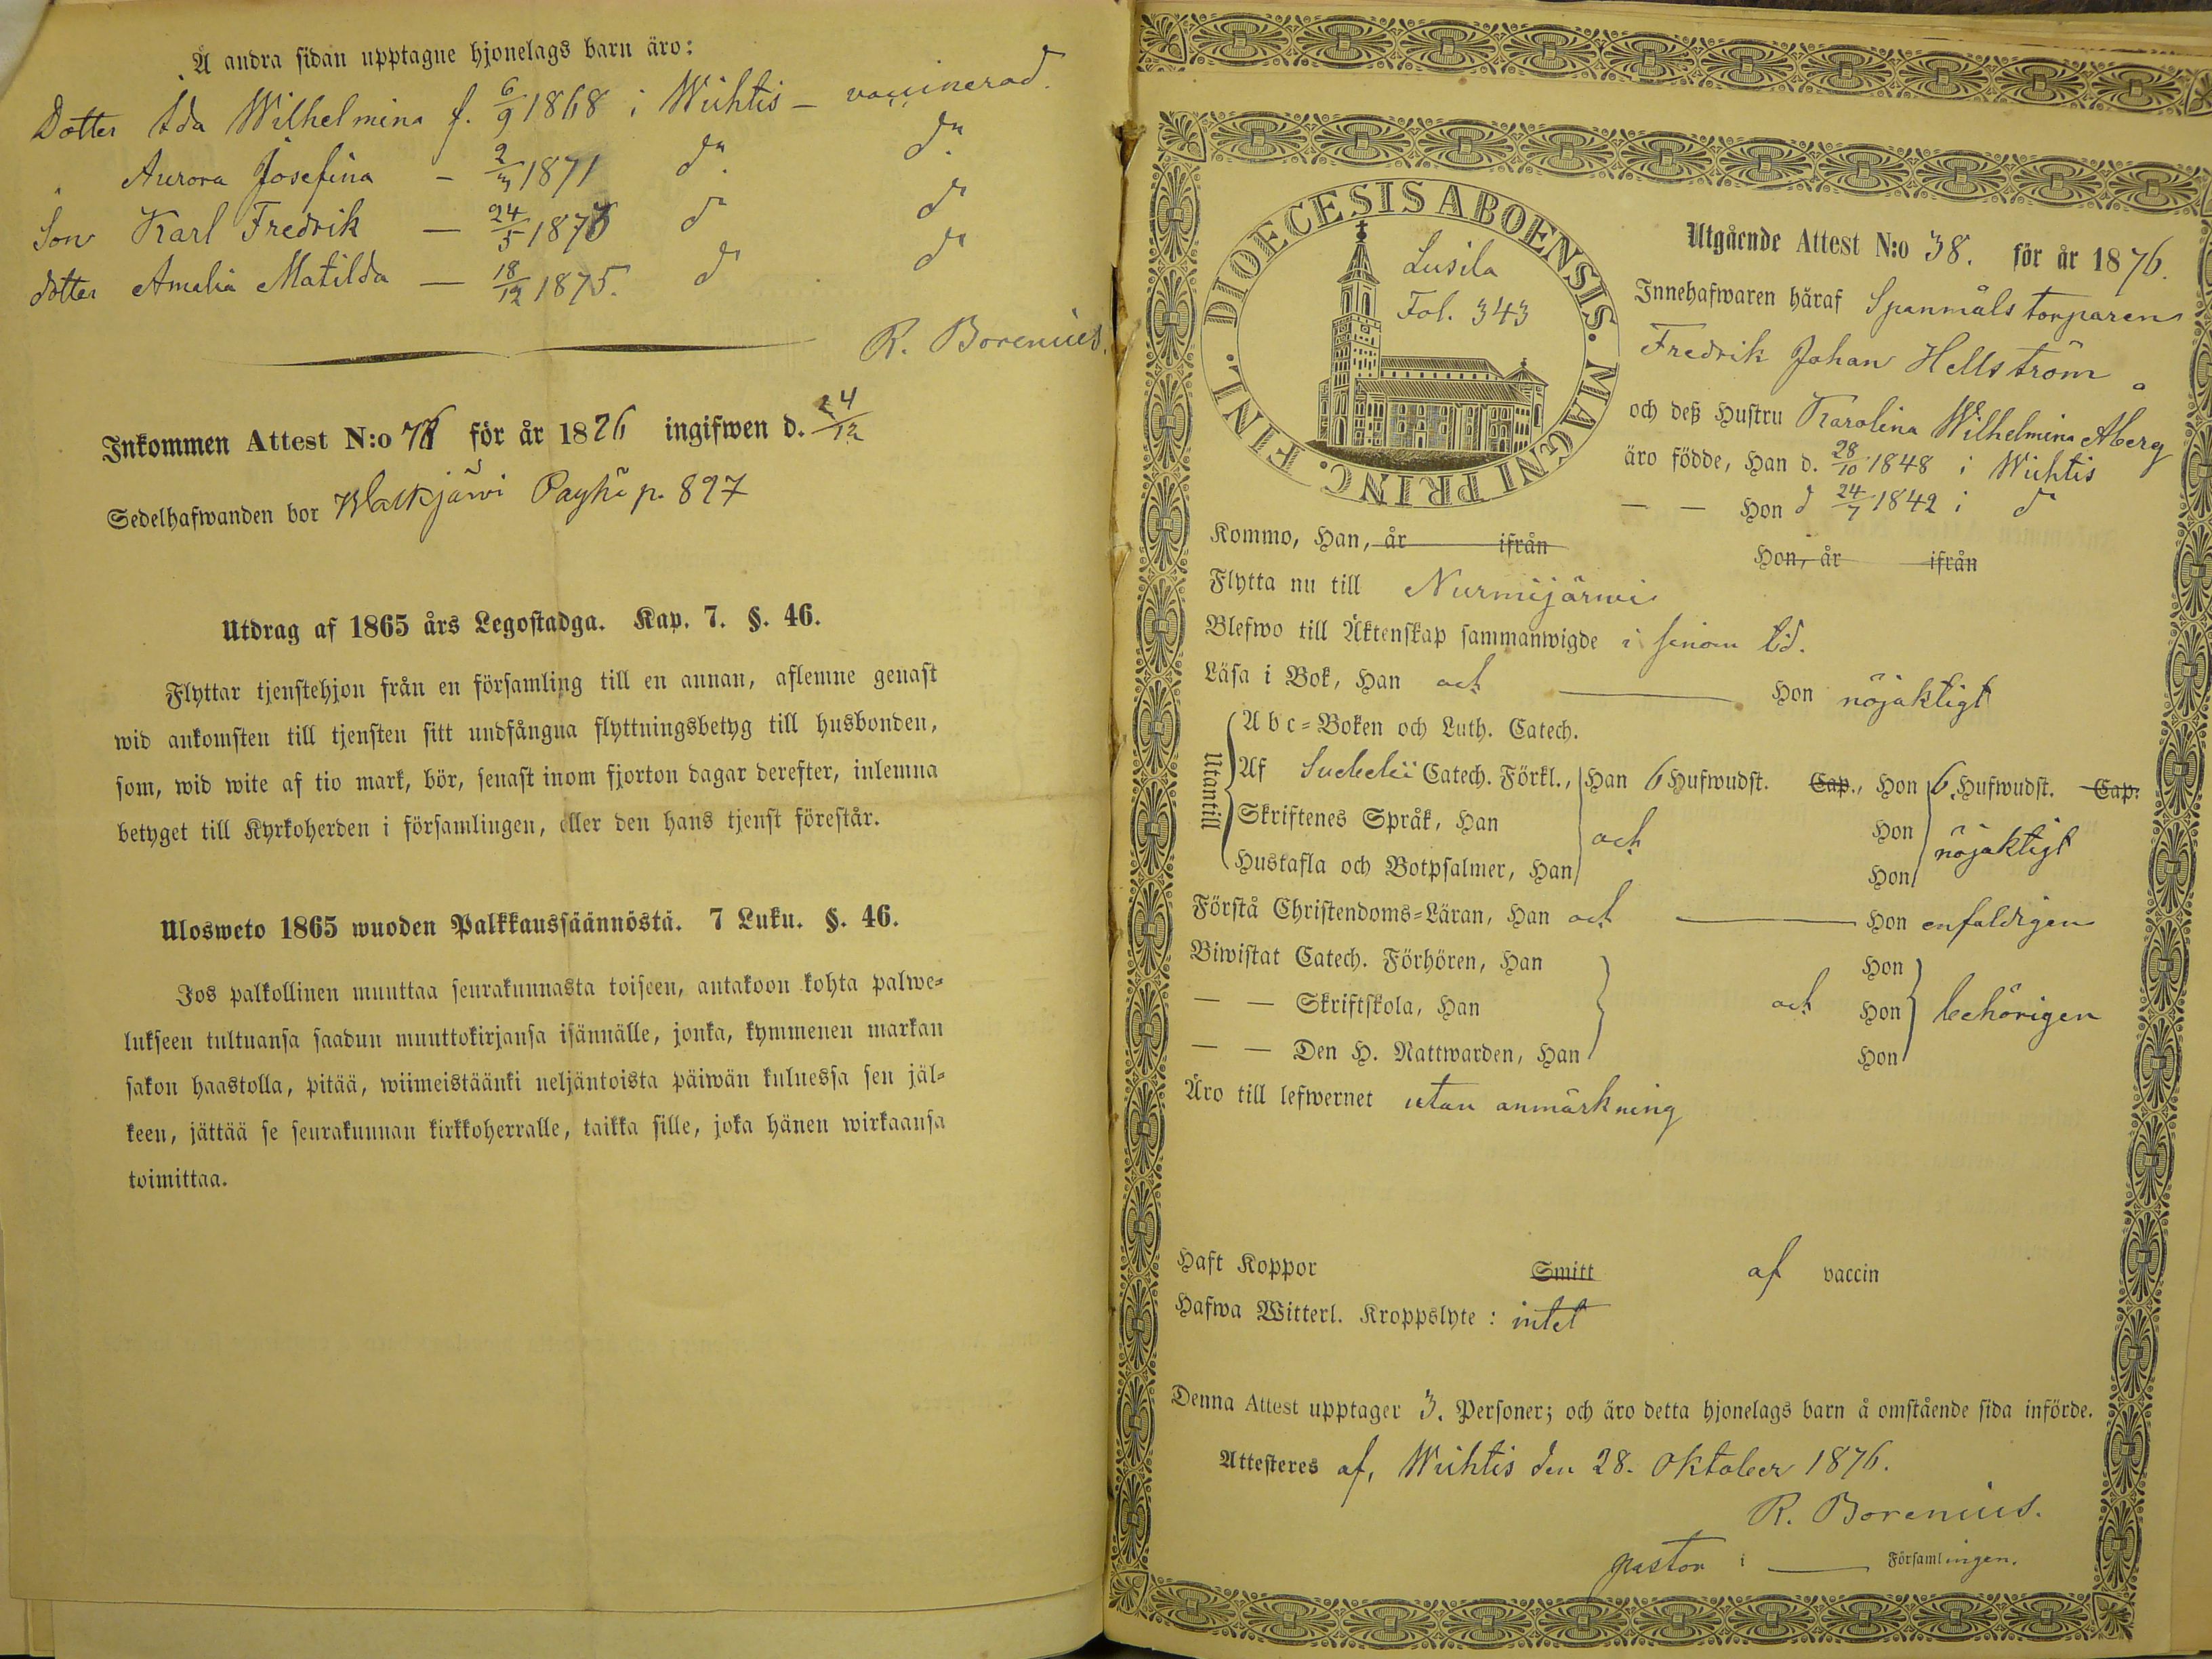 Å andra sidan upptagne hjonelags barn äro:
Dotter Ida Wilhelmina f. 6/9 1868 i Wichtis – vaccinerad.
" Aurora Josefina – 2/3 1871 do do
Son Karl Fredrik — 24/5 1873 do do
dotter Amalia Matilda — 18/12 1875. do do
R. Borenius.
Inkommen Attest N:o 76 för år 1876 ingifwen d. 24/12
Sedelhafwanden bor p. 827
Utdrag af 1865 års Legostadga. Kap. 7. §. 46.
Flyttar tjenstehjon från en församling till en annan, aflemne genast
wid ankomsten till tjensten sitt undfångna flyttningsbetyg till husbonden,
som, wid wite af tio mark, bör, senast inom fjorton dagar derefter, inlemna
betyget till Kyrkoherden i församlingen, eller den hans tjenst förestår.
Ulosweto 1865 wuoden Palkkaussäännöstä. 7 Luku. §. 46.
Jos palkollinen muuttaa seurakunnasta toiseen, antakoon kohta palwe=
lukseen tultuansa saadun muuttokirjansa isännälle, jonka, kymmenen markan
sakon haastolla, pitää, wiimeistäänki neljäntoista päiwän kuluessa sen jäl=
keen, jättää se seurakunnan kirkkoherralle, taikka sille, joka hänen wirkaansa
toimittaa.
DIOECESIS ABOENSIS. MAGNI PRINC. FINL.
Lusila
Fol. 343
Utgående Attest N:o 38. för år 1876.
Innehafwaren häraf Spanmåls torparen
Fredrik Johan Hellström
och deß Hustru Karolina Wilhelmina Åberg
äro födde, Han d. 28/10 1848 i Wichtis
— — Hon d 24/7 1842 i do
Kommo, Han, år ifrån Hon, år ifrån
Flytta nu till Nurmijärwi
Blefwo till Äktenskap sammanwigde i sinom tid.
Läsa i Bok, Han och — Hon nöjaktigt
Utantill
Abc=Boken och Luth. Catech.
Af Catech. Förkl., Han 6 Hufwudst. Cap., Hon 6 Hufwudst. Cap.
Skriftenes Språk, Han och Hon nöjaktigt
Hustafla och Botpsalmer, Han Hon
Förstå Christendoms=Läran, Han och — Hon enfaldigen
Biwistat Catech. Förhören, Han Hon
— — Skriftskola, Han och Hon behörigen
— — Den H. Nattwarden, Han Hon
Äro till lefwernet utan anmärkning
Haft Koppor Smitt af vaccin
Hafwa Witterl. Kroppslyte: intet
Denna Attest upptager 3. Personer; och äro detta hjonelags barn å omstående sida införde.
Attesteres af, Wichtis den 28. Oktober 1876.
R. Borenius.
pastor i — Församlingen.